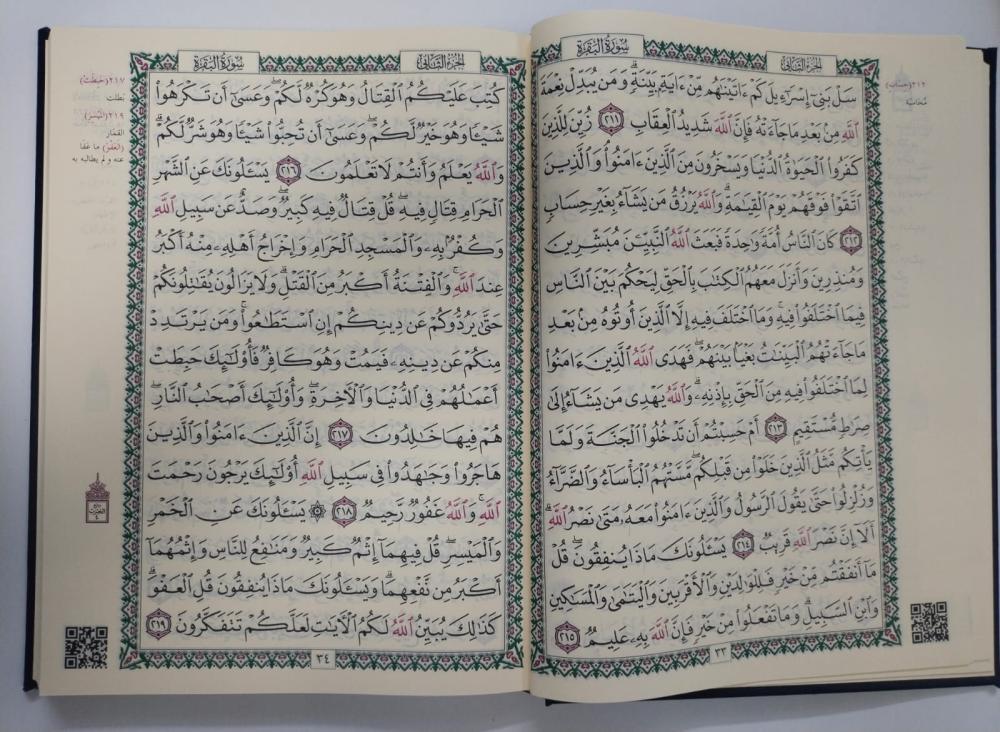 سُورَةُ البَقَرَةِ
الجُزْءُ الثَّانِي
سَلْ بَنِىٓ إِسْرَٰٓءِيلَ كَمْ ءَاتَيْنَٰهُم مِّنْ ءَايَةٍۭ بَيِّنَةٍۗ وَمَن يُبَدِّلْ نِعْمَةَ
ٱللَّهِ مِنۢ بَعْدِ مَا جَآءَتْهُ فَإِنَّ ٱللَّهَ شَدِيدُ ٱلْعِقَابِ ٢١١ زُيِّنَ لِلَّذِينَ
كَفَرُوا۟ ٱلْحَيَوٰةُ ٱلدُّنْيَا وَيَسْخَرُونَ مِنَ ٱلَّذِينَ ءَامَنُوا۟ۘ وَٱلَّذِينَ
ٱتَّقَوْا۟ فَوْقَهُمْ يَوْمَ ٱلْقِيَٰمَةِۗ وَٱللَّهُ يَرْزُقُ مَن يَشَآءُ بِغَيْرِ حِسَابٍ
٢١٢ كَانَ ٱلنَّاسُ أُمَّةً وَٰحِدَةً فَبَعَثَ ٱللَّهُ ٱلنَّبِيِّۦنَ مُبَشِّرِينَ
وَمُنذِرِينَ وَأَنزَلَ مَعَهُمُ ٱلْكِتَٰبَ بِٱلْحَقِّ لِيَحْكُمَ بَيْنَ ٱلنَّاسِ
فِيمَا ٱخْتَلَفُوا۟ فِيهِۚ وَمَا ٱخْتَلَفَ فِيهِ إِلَّا ٱلَّذِينَ أُوتُوهُ مِنۢ بَعْدِ
مَا جَآءَتْهُمُ ٱلْبَيِّنَٰتُ بَغْيًۢا بَيْنَهُمْۖ فَهَدَى ٱللَّهُ ٱلَّذِينَ ءَامَنُوا۟
لِمَا ٱخْتَلَفُوا۟ فِيهِ مِنَ ٱلْحَقِّ بِإِذْنِهِۦۗ وَٱللَّهُ يَهْدِى مَن يَشَآءُ إِلَىٰ
صِرَٰطٍ مُّسْتَقِيمٍ ٢١٣ أَمْ حَسِبْتُمْ أَن تَدْخُلُوا۟ ٱلْجَنَّةَ وَلَمَّا
يَأْتِكُم مَّثَلُ ٱلَّذِينَ خَلَوْا۟ مِن قَبْلِكُمۖ مَّسَّتْهُمُ ٱلْبَأْسَآءُ وَٱلضَّرَّآءُ
وَزُلْزِلُوا۟ حَتَّىٰ يَقُولَ ٱلرَّسُولُ وَٱلَّذِينَ ءَامَنُوا۟ مَعَهُۥ مَتَىٰ نَصْرُ ٱللَّهِۗ
أَلَآ إِنَّ نَصْرَ ٱللَّهِ قَرِيبٌ ٢١٤ يَسْـَٔلُونَكَ مَاذَا يُنفِقُونَۖ قُلْ
مَآ أَنفَقْتُم مِّنْ خَيْرٍ فَلِلْوَٰلِدَيْنِ وَٱلْأَقْرَبِينَ وَٱلْيَتَٰمَىٰ وَٱلْمَسَٰكِينِ
وَٱبْنِ ٱلسَّبِيلِۗ وَمَا تَفْعَلُوا۟ مِنْ خَيْرٍ فَإِنَّ ٱللَّهَ بِهِۦ عَلِيمٌ ٢١٥
٣٣
٢١٢ (حِسَابٍ)
مُحَاسَبَة
سُورَةُ البَقَرَةِ
الجُزْءُ الثَّانِي
كُتِبَ عَلَيْكُمُ ٱلْقِتَالُ وَهُوَ كُرْهٌ لَّكُمْۖ وَعَسَىٰٓ أَن تَكْرَهُوا۟
شَيْـًٔا وَهُوَ خَيْرٌ لَّكُمْۖ وَعَسَىٰٓ أَن تُحِبُّوا۟ شَيْـًٔا وَهُوَ شَرٌّ لَّكُمْۗ
وَٱللَّهُ يَعْلَمُ وَأَنتُمْ لَا تَعْلَمُونَ ٢١٦ يَسْـَٔلُونَكَ عَنِ ٱلشَّهْرِ
ٱلْحَرَامِ قِتَالٍ فِيهِۖ قُلْ قِتَالٌ فِيهِ كَبِيرٌۖ وَصَدٌّ عَن سَبِيلِ ٱللَّهِ
وَكُفْرٌۢ بِهِۦ وَٱلْمَسْجِدِ ٱلْحَرَامِ وَإِخْرَاجُ أَهْلِهِۦ مِنْهُ أَكْبَرُ
عِندَ ٱللَّهِۚ وَٱلْفِتْنَةُ أَكْبَرُ مِنَ ٱلْقَتْلِۗ وَلَا يَزَالُونَ يُقَٰتِلُونَكُمْ
حَتَّىٰ يَرُدُّوكُمْ عَن دِينِكُمْ إِنِ ٱسْتَطَٰعُوا۟ۚ وَمَن يَرْتَدِدْ
مِنكُمْ عَن دِينِهِۦ فَيَمُتْ وَهُوَ كَافِرٌ فَأُو۟لَٰٓئِكَ حَبِطَتْ
أَعْمَٰلُهُمْ فِى ٱلدُّنْيَا وَٱلْءَاخِرَةِۖ وَأُو۟لَٰٓئِكَ أَصْحَٰبُ ٱلنَّارِۖ
هُمْ فِيهَا خَٰلِدُونَ ٢١٧ إِنَّ ٱلَّذِينَ ءَامَنُوا۟ وَٱلَّذِينَ
هَاجَرُوا۟ وَجَٰهَدُوا۟ فِى سَبِيلِ ٱللَّهِ أُو۟لَٰٓئِكَ يَرْجُونَ رَحْمَتَ
ٱللَّهِۚ وَٱللَّهُ غَفُورٌ رَّحِيمٌ ٢١٨ ۞ يَسْـَٔلُونَكَ عَنِ ٱلْخَمْرِ
وَٱلْمَيْسِرِۖ قُلْ فِيهِمَآ إِثْمٌ كَبِيرٌ وَمَنَٰفِعُ لِلنَّاسِ وَإِثْمُهُمَآ
أَكْبَرُ مِن نَّفْعِهِمَاۗ وَيَسْـَٔلُونَكَ مَاذَا يُنفِقُونَ قُلِ ٱلْعَفْوَۗ
كَذَٰلِكَ يُبَيِّنُ ٱللَّهُ لَكُمُ ٱلْءَايَٰتِ لَعَلَّكُمْ تَتَفَكَّرُونَ ٢١٩
٣٤
٢١٧ (حَبِطَتْ)
بَطلت
٢١٩ (المَيْسِرِ)
القمَار
(العَفْوَ) ما عَفَا
عنه ولم يطالبه به